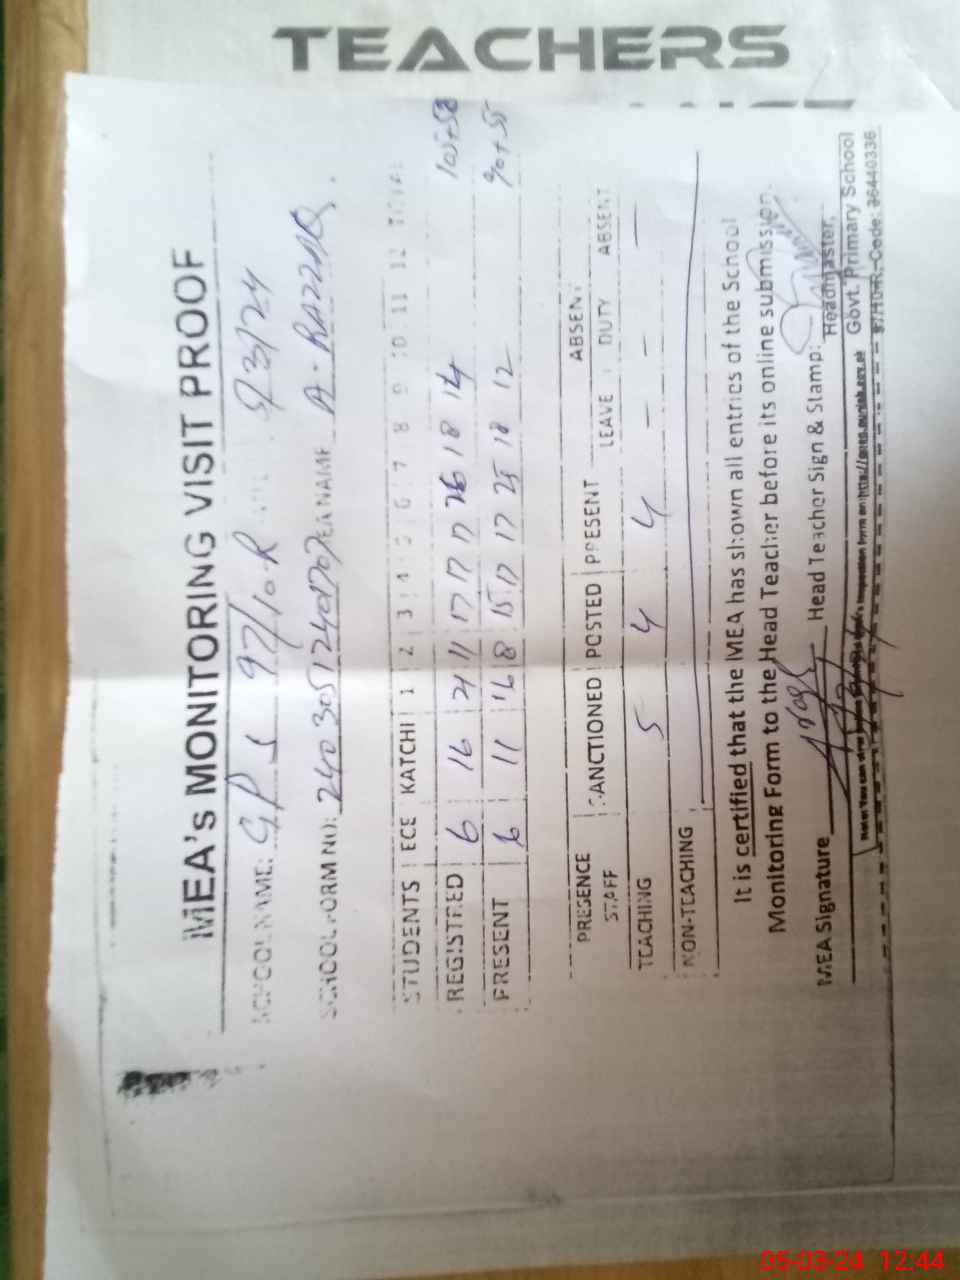 TEACHERS
MEA's MONITORING VISIT PROOF
SCHOOL NAME: GPS 97/10-R 5/3/24
SCHOOL FORM NO: MEA NAME A. RAZZAQ.
STUDENTS ECE KATCHI 1 2 3 4 5 6 7 8 9 10 11 12 TOTAL
REGISTRED 6 16 21 11 17 17 17 26 18 14 100+58
PRESENT 6 11 16 8 15 17 17 25 18 12 90+55
PRESENCE ABSENT
STAFF SANCTIONED POSTED PRESENT LEAVE DUTY ABSENT
TEACHING 5 4 4 — — —
NON-TEACHING
It is certified that the MEA has shown all entries of the School
Monitoring Form to the Head Teacher before its online submission.
MEA Signature Head Teacher Sign & Stamp:
Headmaster,
Govt. Primary School
97/10-R, Code: 36440336
05-03-24 12:44